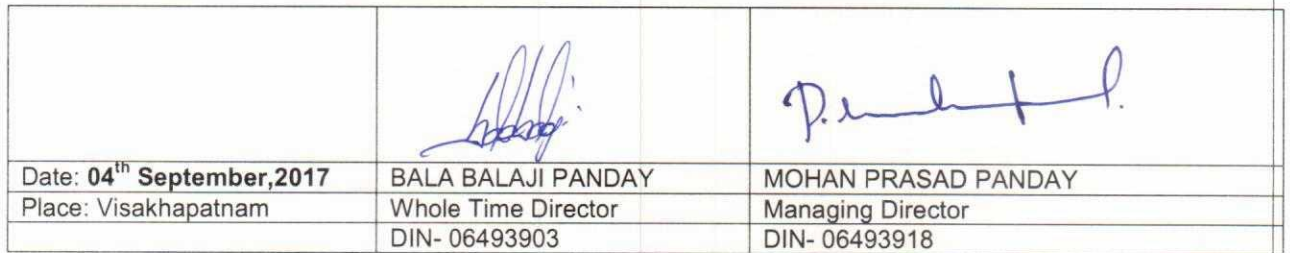 Date: 04th September,2017 BALA BALAJI PANDAY MOHAN PRASAD PANDAY
Place: Visakhapatnam Whole Time Director Managing Director
DIN- 06493903 DIN- 06493918